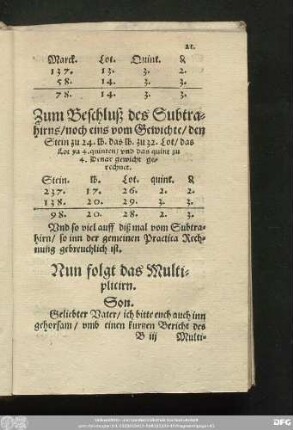 21.
Marck. Lot. Quint. ₰
137. 13. 3. 2.
58. 14. 3. 3.
78. 14. 3. 3.
Zum Beschluß des Subtra-
hirns/noch eins vom Gewichte/den
Stein zu 24. lb. das lb. zu 32. Lot/das
Lot zu 4. quinten/ vnd das quint zu
4. Denar gewicht ge-
rechnet.
Stein. lb. Lot. quink. ₰
237. 17. 26. 2. 2.
138. 20. 29. 3. 3.
98. 20. 28. 2. 3.
Vnd so viel auff diß mal vom Subtra-
hirn/ so inn der gemeinen Practica Rech-
nung gebreuchlich ist.
Nun folgt das Multi-
plicirn.
Son.
Geliebter Vater/ ich bitte euch auch inn
gehorsam/ vmb einen kurtzen Bericht des
B iij Multi-
DFG